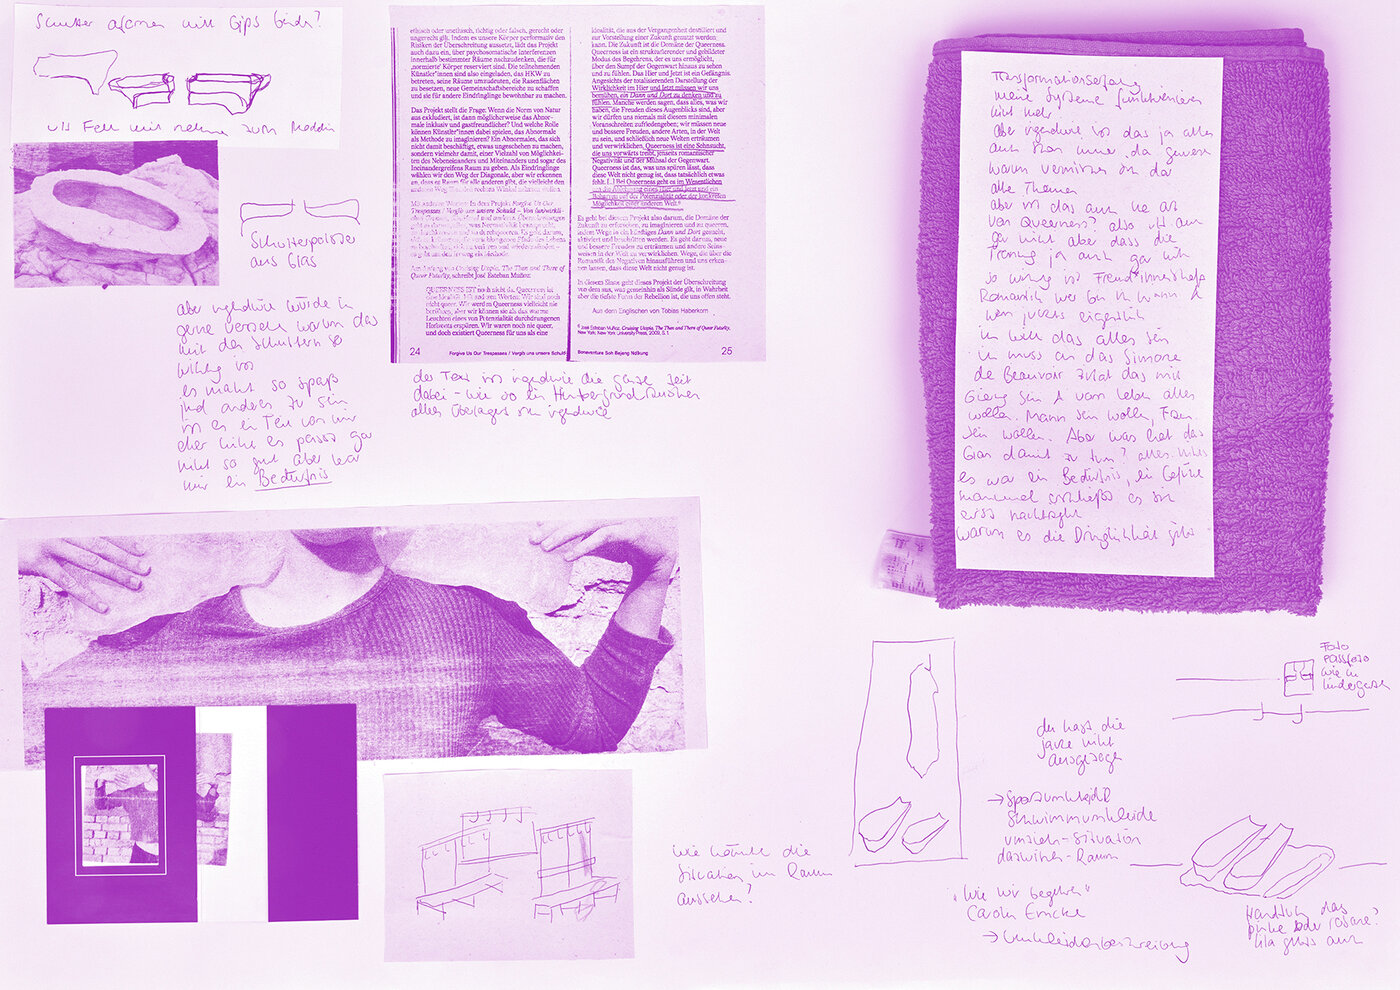 Schulter abformen mit Gips binde?
als Fell mit nehmen zum
Schulterpolster
aus Glas
aber irgendwie würde ich
gerne verstehen warum das
mit den Schultern so
wichtig ist
es macht so spaß
jmd anderes zu sein
ist es ein Teil von mir
eher nicht es passt gar
nicht so gut aber war
mir ein Bedürfnis
ethisch oder unethisch, richtig oder falsch, gerecht oder
ungerecht gilt. Indem es unsere Körper performativ den
Risiken der Überschreitung aussetzt, lädt das Projekt
auch dazu ein, über psychosomatische Interferenzen
innerhalb bestimmter Räume nachzudenken, die für
‚normierte' Körper reserviert sind. Die teilnehmenden
Künstler*innen sind also eingeladen, das HKW zu
betreten, seine Räume umzudeuten, die Rasenflächen
zu besetzen, neue Gemeinschaftsbereiche zu schaffen
und sie für andere Eindringlinge bewohnbar zu machen.
Das Projekt stellt die Frage: Wenn die Norm von Natur
aus exkludiert, ist dann möglicherweise das Abnorme
inklusiv und gastfreundlicher? Und welche Rolle
können Künstler*innen dabei spielen, das Abnormale
als Methode zu imaginieren? Ein Abnormales, das sich
nicht damit beschäftigt, etwas ungeschehen zu machen,
sondern vielmehr damit, einer Vielzahl von Möglichkei-
ten des Nebeneinanders und Miteinanders und sogar des
Ineinandergreifens Raum zu geben. Als Eindringlinge
wählen wir den Weg der Diagonale, aber wir erkennen
an, dass es Raum für alle anderen gibt, die vielleicht den
anderen Weg
Mit anderen Worten: In dem Projekt Forgive Us Our
Trespasses / Vergib uns unsere Schuld
Am Anfang von Cruising Utopia. The Then and There of
Queer Futurity, schreibt José Esteban Muñoz:
QUEERNESS IST noch nicht da. Queerness ist
eine Idealität. Mit anderen Worten: Wir sind noch
nicht queer. Wir werden Queerness vielleicht nie
berühren, aber wir können sie als das warme
Leuchten eines von Potenzialität durchdrungenen
Horizonts erspüren. Wir waren noch nie queer,
und doch existiert Queerness für uns als eine
24
Forgive Us Our Trespasses / Vergib uns unsere Schuld
Idealität, die aus der Vergangenheit destilliert und
zur Vorstellung einer Zukunft genutzt werden
kann. Die Zukunft ist die Domäne der Queerness.
Queerness ist ein strukturierender und gebildeter
Modus des Begehrens, der es uns ermöglicht,
über den Sumpf der Gegenwart hinaus zu sehen
und zu fühlen. Das Hier und Jetzt ist ein Gefängnis.
Angesichts der totalisierenden Darstellung der
Wirklichkeit im Hier und Jetzt müssen wir uns
bemühen, ein Dann und Dort zu denken und zu
fühlen. Manche werden sagen, dass alles, was wir
haben, die Freuden dieses Augenblicks sind, aber
wir dürfen uns niemals mit diesem minimalen
Voranschreiten zufriedengeben; wir müssen neue
und bessere Freuden, andere Arten, in der Welt
zu sein, und schließlich neue Welten erträumen
und verwirklichen. Queerness ist eine Sehnsucht,
die uns vorwärts treibt, jenseits romantischer
Negativität und der Mühsal der Gegenwart.
Queerness ist das, was uns spüren lässt, dass
diese Welt nicht genug ist, dass tatsächlich etwas
fehlt. [...] Bei Queerness geht es im Wesentlichen
um die Ablehnung eines Hier und Jetzt und ein
Beharren auf der Potenzialität oder der konkreten
Möglichkeit einer anderen Welt.
Es geht bei diesem Projekt also darum, die Domäne der
Zukunft zu erforschen, zu imaginieren und zu queeren,
indem Wege in ein künftiges Dann und Dort gesucht,
aktiviert und beschritten werden. Es geht darum, neue
und bessere Freuden zu erträumen und andere Seins-
weisen in der Welt zu verwirklichen. Wege, die über die
Romantik des Negativen hinausführen und uns erken-
nen lassen, dass diese Welt nicht genug ist.
In diesem Sinne geht dieses Projekt der Überschreitung
von dem aus, was gemeinhin als Sünde gilt, in Wahrheit
aber die tiefste Form der Rebellion ist, die uns offen steht.
Aus dem Englischen von Tobias Haberkorn
José Esteban Muñoz, Cruising Utopia. The Then and There of Queer Futurity,
New York: New York University Press, 2009, S. 1.
Bonaventure Soh Bejeng Ndikung
25
der Text ist irgendwie die ganze Zeit
dabei - wie so ein Hintergrundrauschen
alles überlagert sich irgendwie
Transformationserfahrung
meine Systeme funktionieren
nicht mehr
Aber irgendwie ist das ja alles
auch schon immer da gewesen
warum vermisse ich da
alte Themen
aber ist das auch ne Art
von Queerness? also ich auch
gar nicht aber dass die
Trennung ja auch gar nicht
so wichtig ist Freund*innenschaft
Romantik wer bin ich wann &
wen juckts eigentlich
ich will das alles sein
ich muss an das Simone
de Beauvoir Zitat das mit
Gierig sein & vom Leben alles
wollen. Mann sein wollen, Frau
sein wollen. Aber was hat das
Gian damit zu tun? alles nichts
es war ein Bedürfnis, ein Gefühl
manchmal erschließt es sich
erst nachträglich
warum es die Dringlichkeit gibt
wie könnte die
Situation im Raum
aussehen?
der hast die
ganze nicht
ausgezogen
→ Sportumkleide
Schwimmumkleide
umzieh-Situation
dazwischen-Raum
"Wie wir begehren"
Carolin Emcke
→ Umkleidenbeschreibung
Foto
Passfoto
wie im
Kindergarten
Handtuch das
pinke oder rosane?
lila geht auch